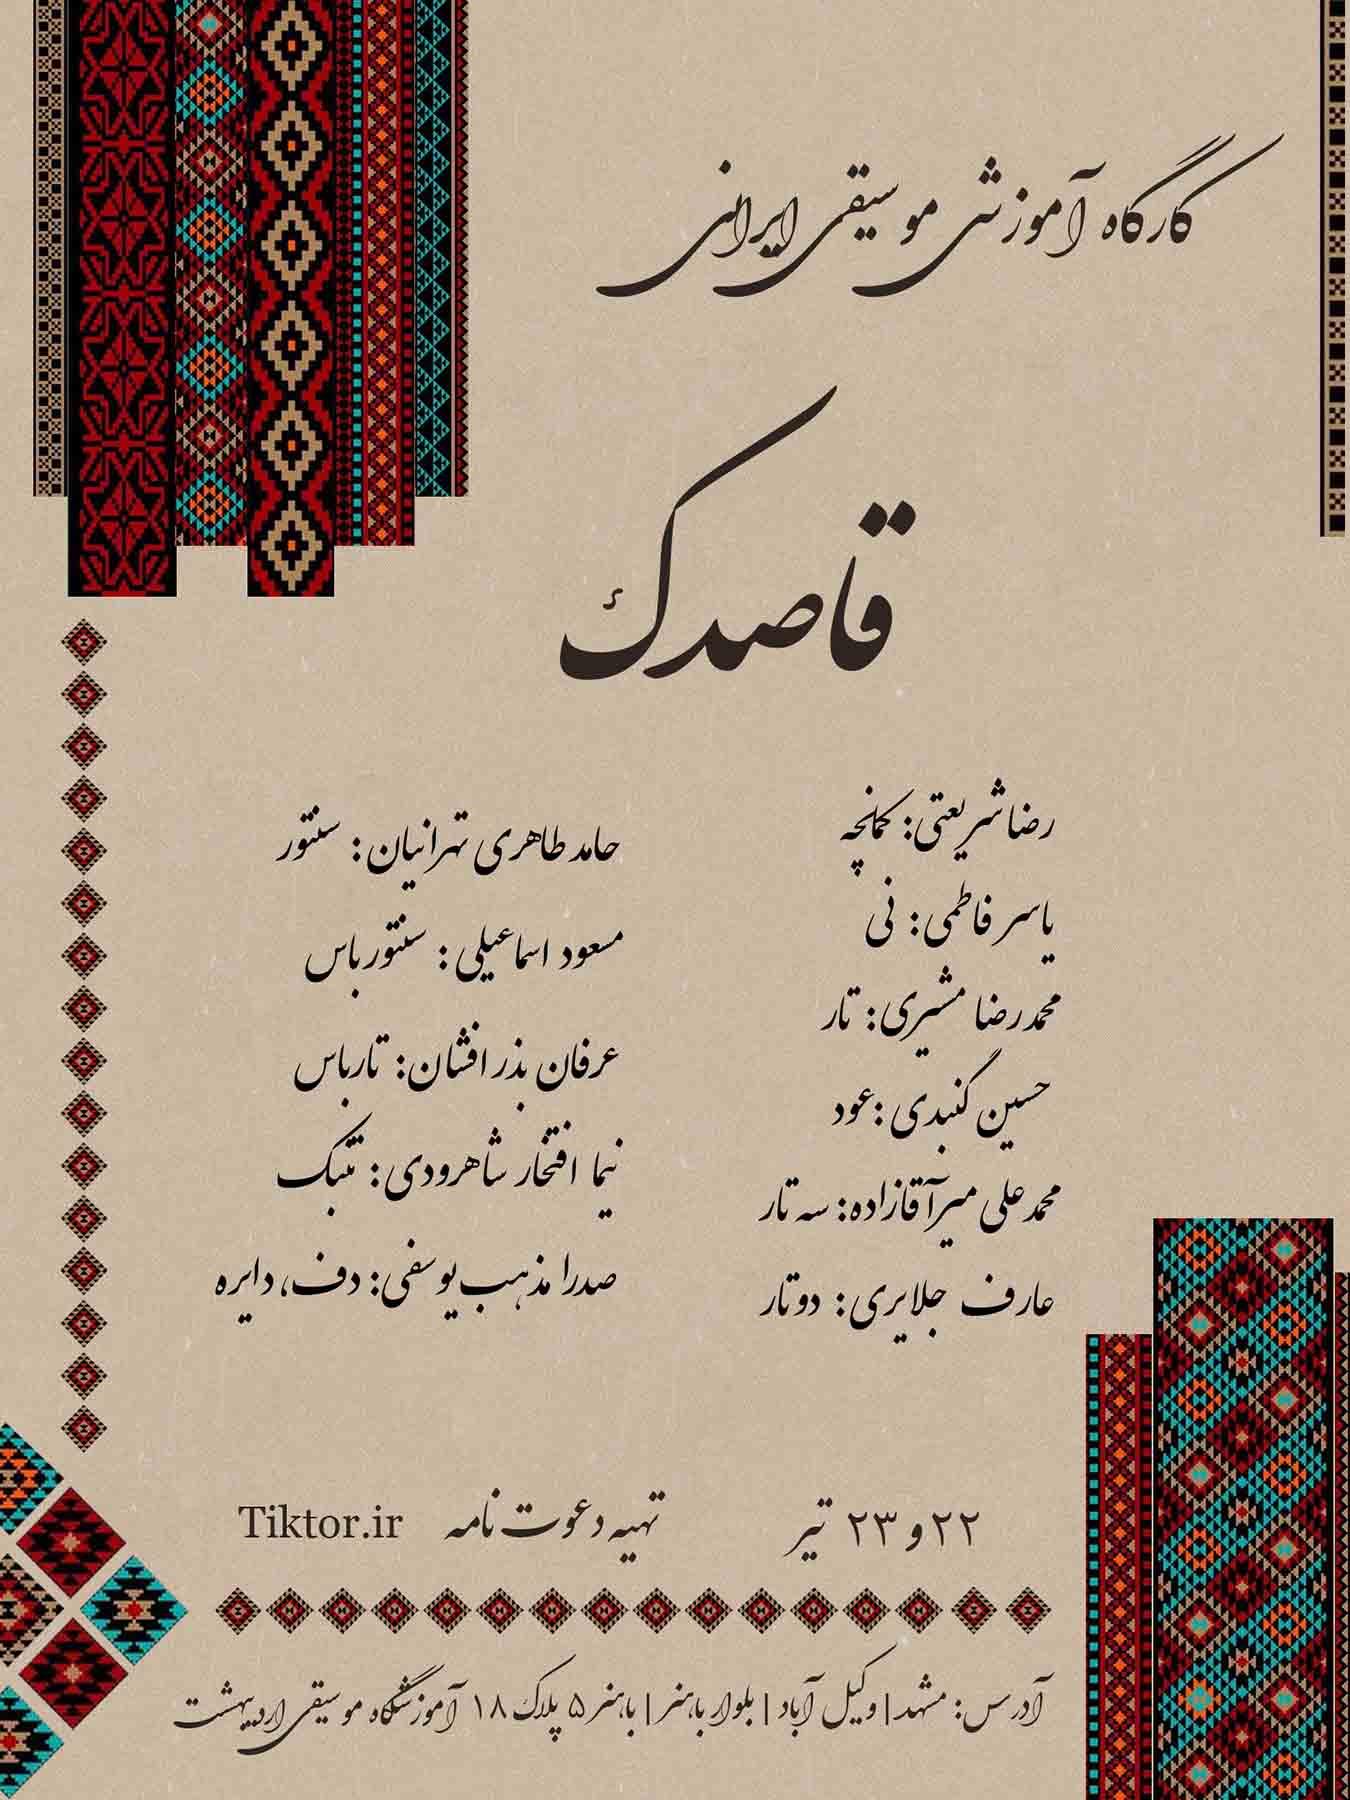 کارگاه آموزشی موسیقی ایرانی
قاصدک
رضا شریعتی: کمانچه
یاسر فاطمی: نی
محمدرضا مشیری: تار
حسین گنبدی: عود
محمدعلی میرآقازاده: سه تار
عارف جلایری: دوتار
حامد طاهری تهرانیان: سنتور
مسعود اسماعیلی: سنتور باس
عرفان بذرافشان: تار باس
نیما افتخار شاهرودی: تنبک
صدرا مذهب یوسفی: دف، دایره
۲۲ و ۲۳ تیر
تهیه دعوت نامه Tiktor.ir
آدرس: مشهد | وکیل آباد | بلوار باهنر | باهنر ۵ پلاک ۱۸ آموزشگاه موسیقی اردیبهشت